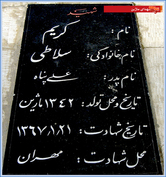 شهید
نام : کریم
نام خانوادگی : سلاطی
نام پدر : علی پناه
تاریخ و محل تولد : ۱۳۴۲
تاریخ شهادت : ۱۳۶۷/۱/۲۱
محل شهادت : مهران